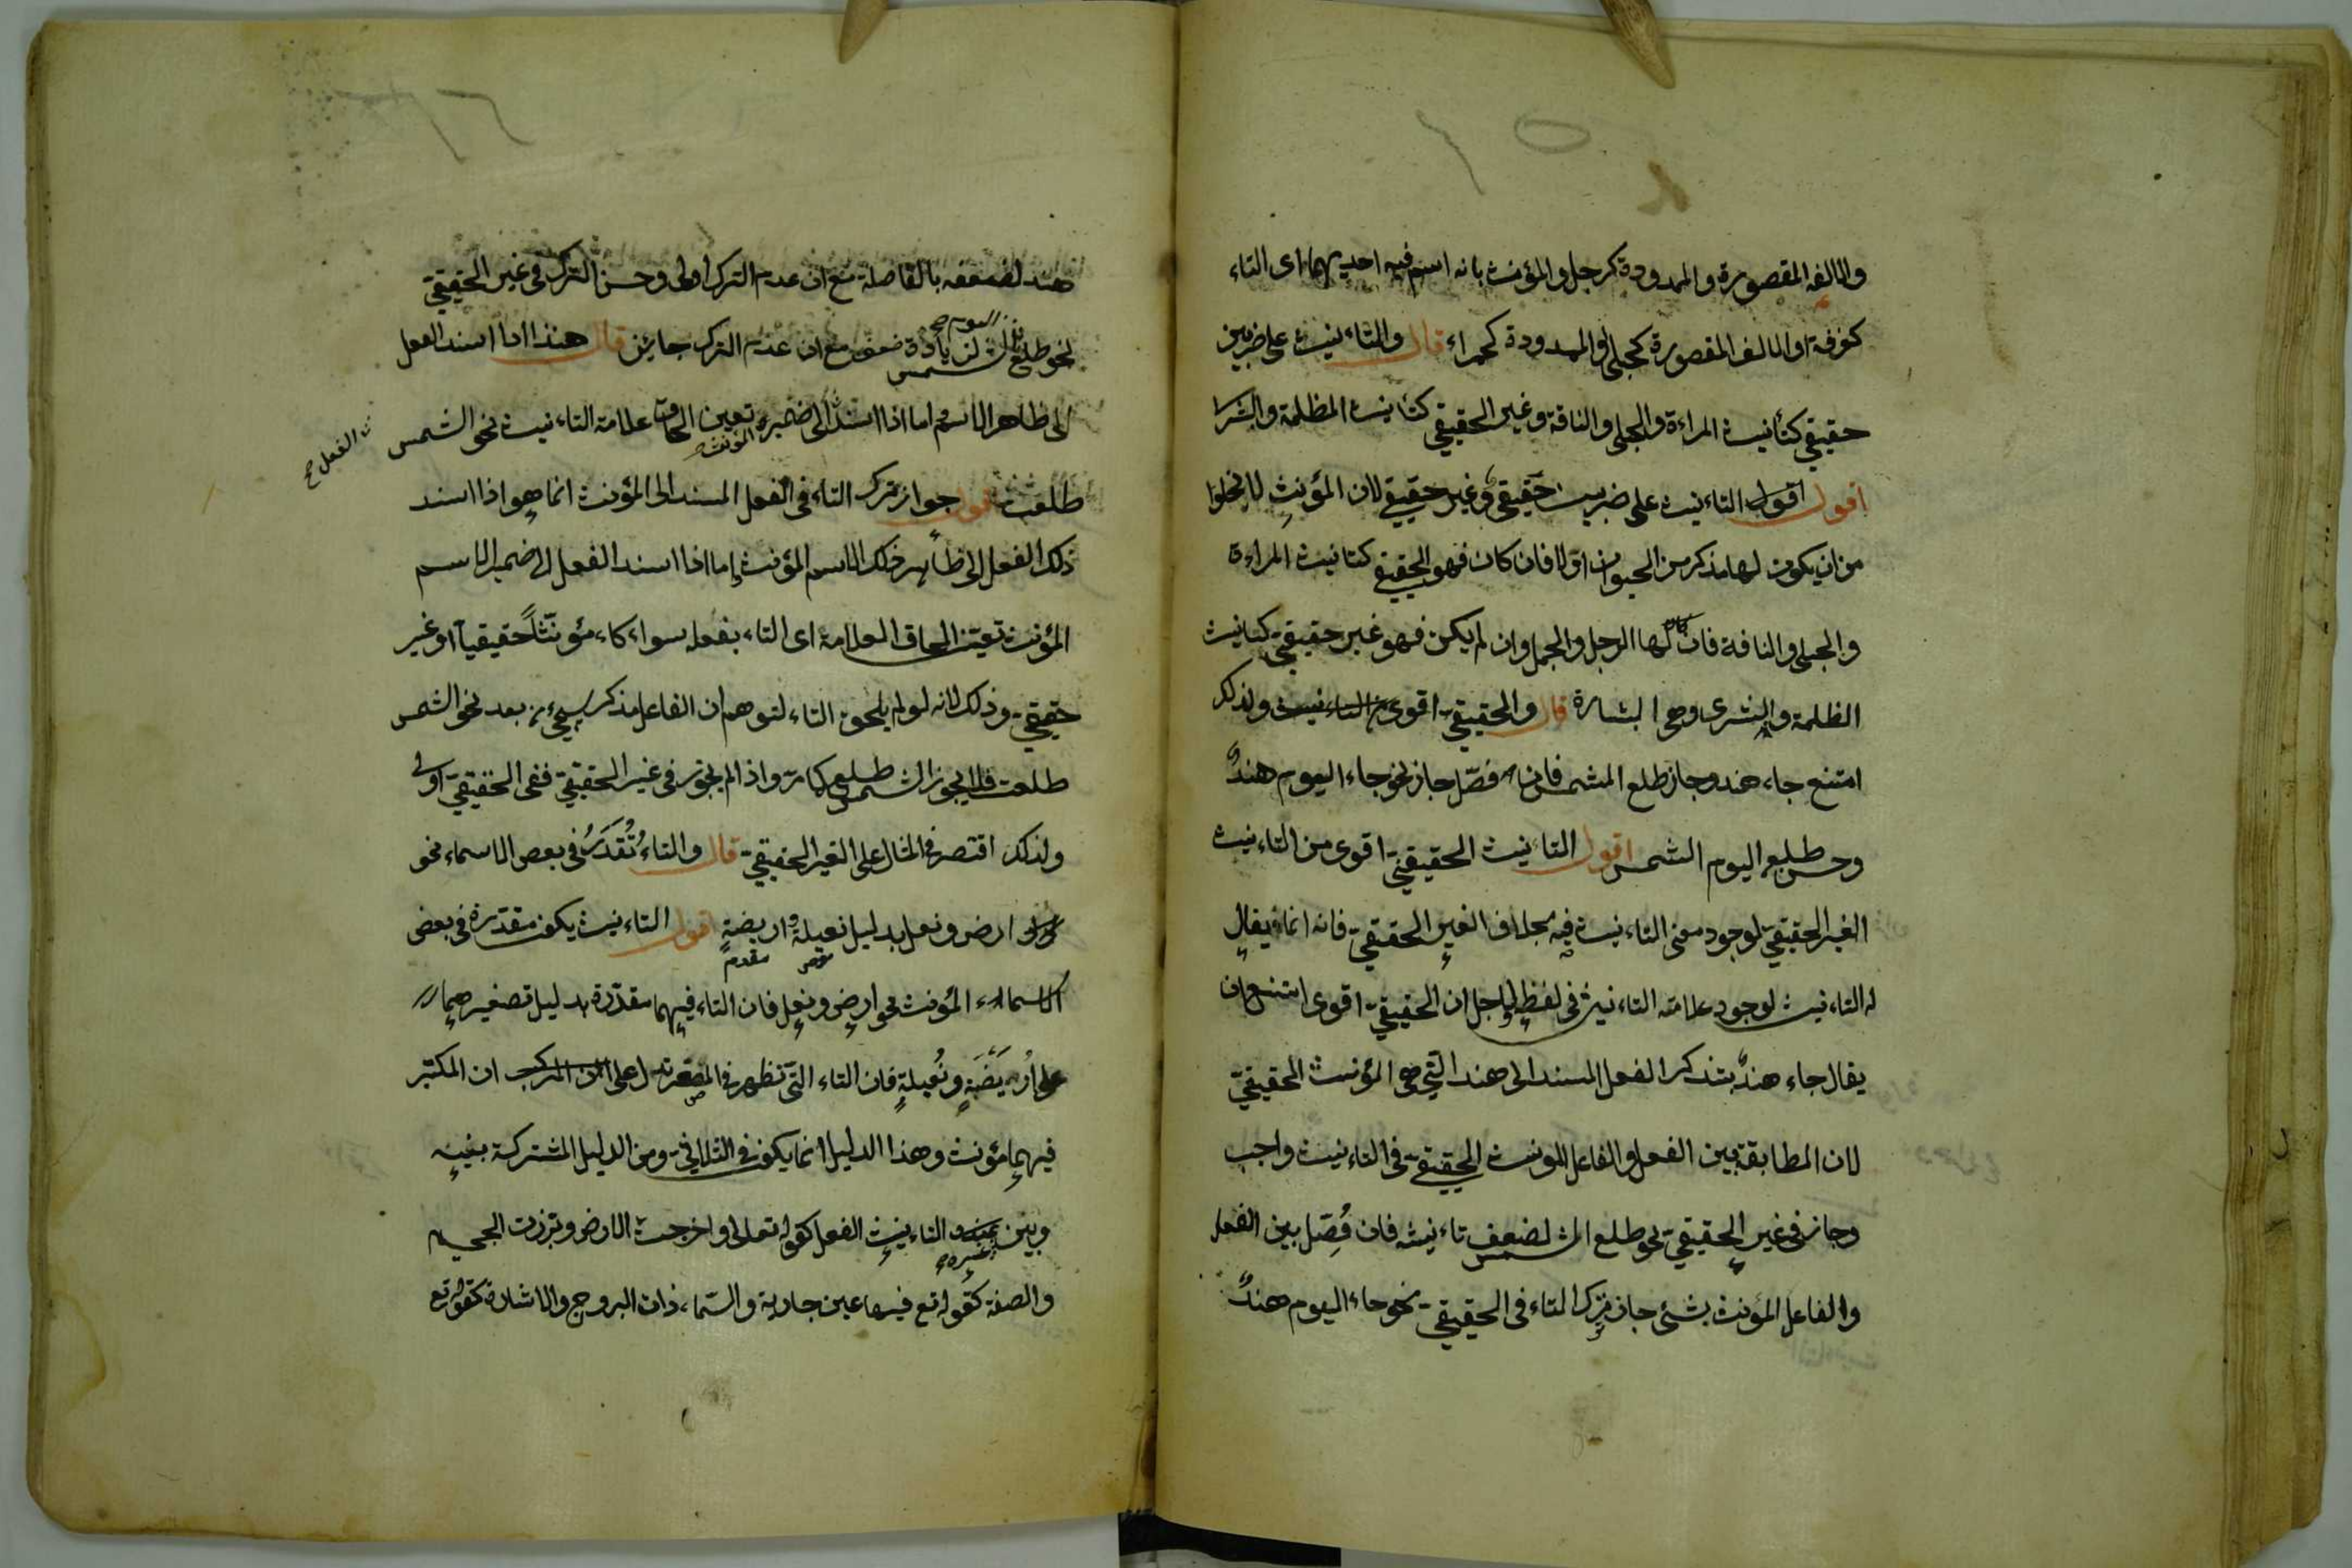 والالف المقصورة والممدودة كرجل والمؤنث بانه اسم فيه احديهما اى التاء
كغرفة او الالف المقصورة كحبلى او الممدودة كحمراء قال والتاءنيث على ضربين
حقيقي كتأنيث المراءة والحبلى والناقة وغير الحقيقي كتأنيث الظلمة والبشرى
اقول اقول التاءنيث على ضربين حقيقي وغير حقيقي لان المؤنث لا يخلوا
من ان يكون لها مذكر من الحيوان او لا فان كان فهو الحقيقي كتانيث المراءة
والحبلى والناقة فان لها الرجل والجمل وان لم يكن فهو غير حقيقي كتانيث
الظلمة والبشرى وهى البشارة قال والحقيقي اقوى من التاءنيث ولذلك
امتنع جاء هند وجاز طلع الشمس فان فصل جاز نحو جاء اليوم هندٌ
وحسن طلع اليوم الشمس اقول التاءنيث الحقيقي اقوى من التاءنيث
الغير الحقيقي لوجود معنى التاءنيث فيه بخلاف الغير الحقيقي فانه انما يقال
له التاءنيث لوجود علامة التاءنيث في لفظه ولاجل ان الحقيقي اقوى امتنع ان
يقال جاء هندٌ بتذكير الفعل المسند الى هند التى هي المؤنث الحقيقي
لان المطابقة بين الفعل والفاعل المؤنث الحقيقي في التاءنيث واجب
وجاز في غير الحقيقي نحو طلع الشمس لضعف تاءنيثه فان فُصّل بين الفعل
والفاعل المؤنث بشئ جاز ترك التاء في الحقيقي نحو جاء اليوم هندٌ
هند لضعفه بالفاصلة مع ان عدم الترك اولى وحسن الترك في غير الحقيقي
نحو طلع اليوم الشمس لزيادة ضعفه مع ان عدم الترك جائز قال هذا اذا اسند الفعل
الى ظاهر الاسم اما اذا اسند الى ضميره تعين الحاق علامة التاءنيث نحو الشمس
طلعت اقول جواز ترك التاء في الفعل المسند الى المؤنث انما هو اذا اسند
ذلك الفعل الى ظاهر ذلك الاسم المؤنث واما اذا اسند الفعل الى ضمير الاسم
المؤنث تعيّن الحاق العلامة اى التاء بفعله سواء كان مؤنّثاً حقيقياً او غير
حقيقي وذلك لانه لو لم يلحق التاء لتوهم ان الفاعل مذكر سيجئ من بعد نحو الشمس
طلعت فلا يجوز الشمس طلع كما مر واذا لم يجز في غير الحقيقي ففى الحقيقي اولى
ولذلك اقتصر في المثال على الغير الحقيقي قال والتاءُ تُقَدَّرُ في بعض الاسماء نحو
ارض ونعل بدليل نعيلة واريضةٍ اقول التاءنيث يكون مقدّرة في بعض
الاسماء المؤنث نحو ارضٍ ونعلٍ فان التاء فيهما مقدّرة بدليل تصغيرهما
على اُرَيْضَةٍ ونُعيلةٍ فان التاء التّى تظهر في المصغر تدل على ان المكبّر
فيهما مؤنث وهذا الدليل انما يكون في الثلاثي ومن الدليل المشتركة بينه
وبين غيره التاءنيث الفعل كقوله تعالى واخرجت الارض وبرزت الجحيم
والصفة كقوله تع فيها عين جارية والسّماء ذات البروج والاشارة كقوله تع